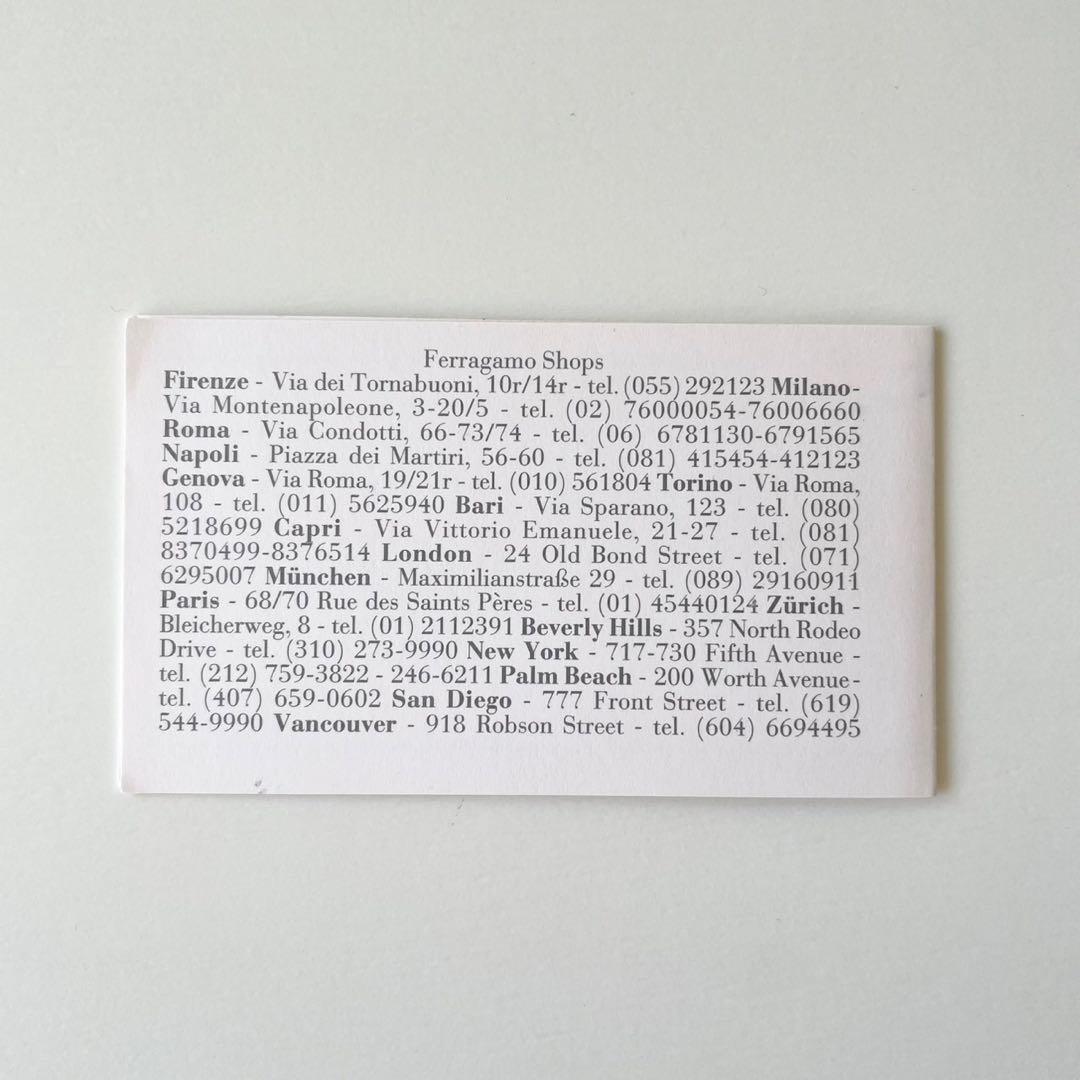 Ferragamo Shops
Firenze - Via dei Tornabuoni, 10r/14r - tel. (055) 292123 Milano-
Via Montenapoleone, 3-20/5 - tel. (02) 76000054-76006660
Roma - Via Condotti, 66-73/74 - tel. (06) 6781130-6791565
Napoli - Piazza dei Martiri, 56-60 - tel. (081) 415454-412123
Genova - Via Roma, 19/21r - tel. (010) 561804 Torino - Via Roma,
108 - tel. (011) 5625940 Bari - Via Sparano, 123 - tel. (080)
5218699 Capri - Via Vittorio Emanuele, 21-27 - tel. (081)
8370499-8376514 London - 24 Old Bond Street - tel. (071)
6295007 München - Maximilianstraße 29 - tel. (089) 29160911
Paris - 68/70 Rue des Saints Pères - tel. (01) 45440124 Zürich -
Bleicherweg, 8 - tel. (01) 2112391 Beverly Hills - 357 North Rodeo
Drive - tel. (310) 273-9990 New York - 717-730 Fifth Avenue -
tel. (212) 759-3822 - 246-6211 Palm Beach - 200 Worth Avenue-
tel. (407) 659-0602 San Diego - 777 Front Street - tel. (619)
544-9990 Vancouver - 918 Robson Street - tel. (604) 6694495